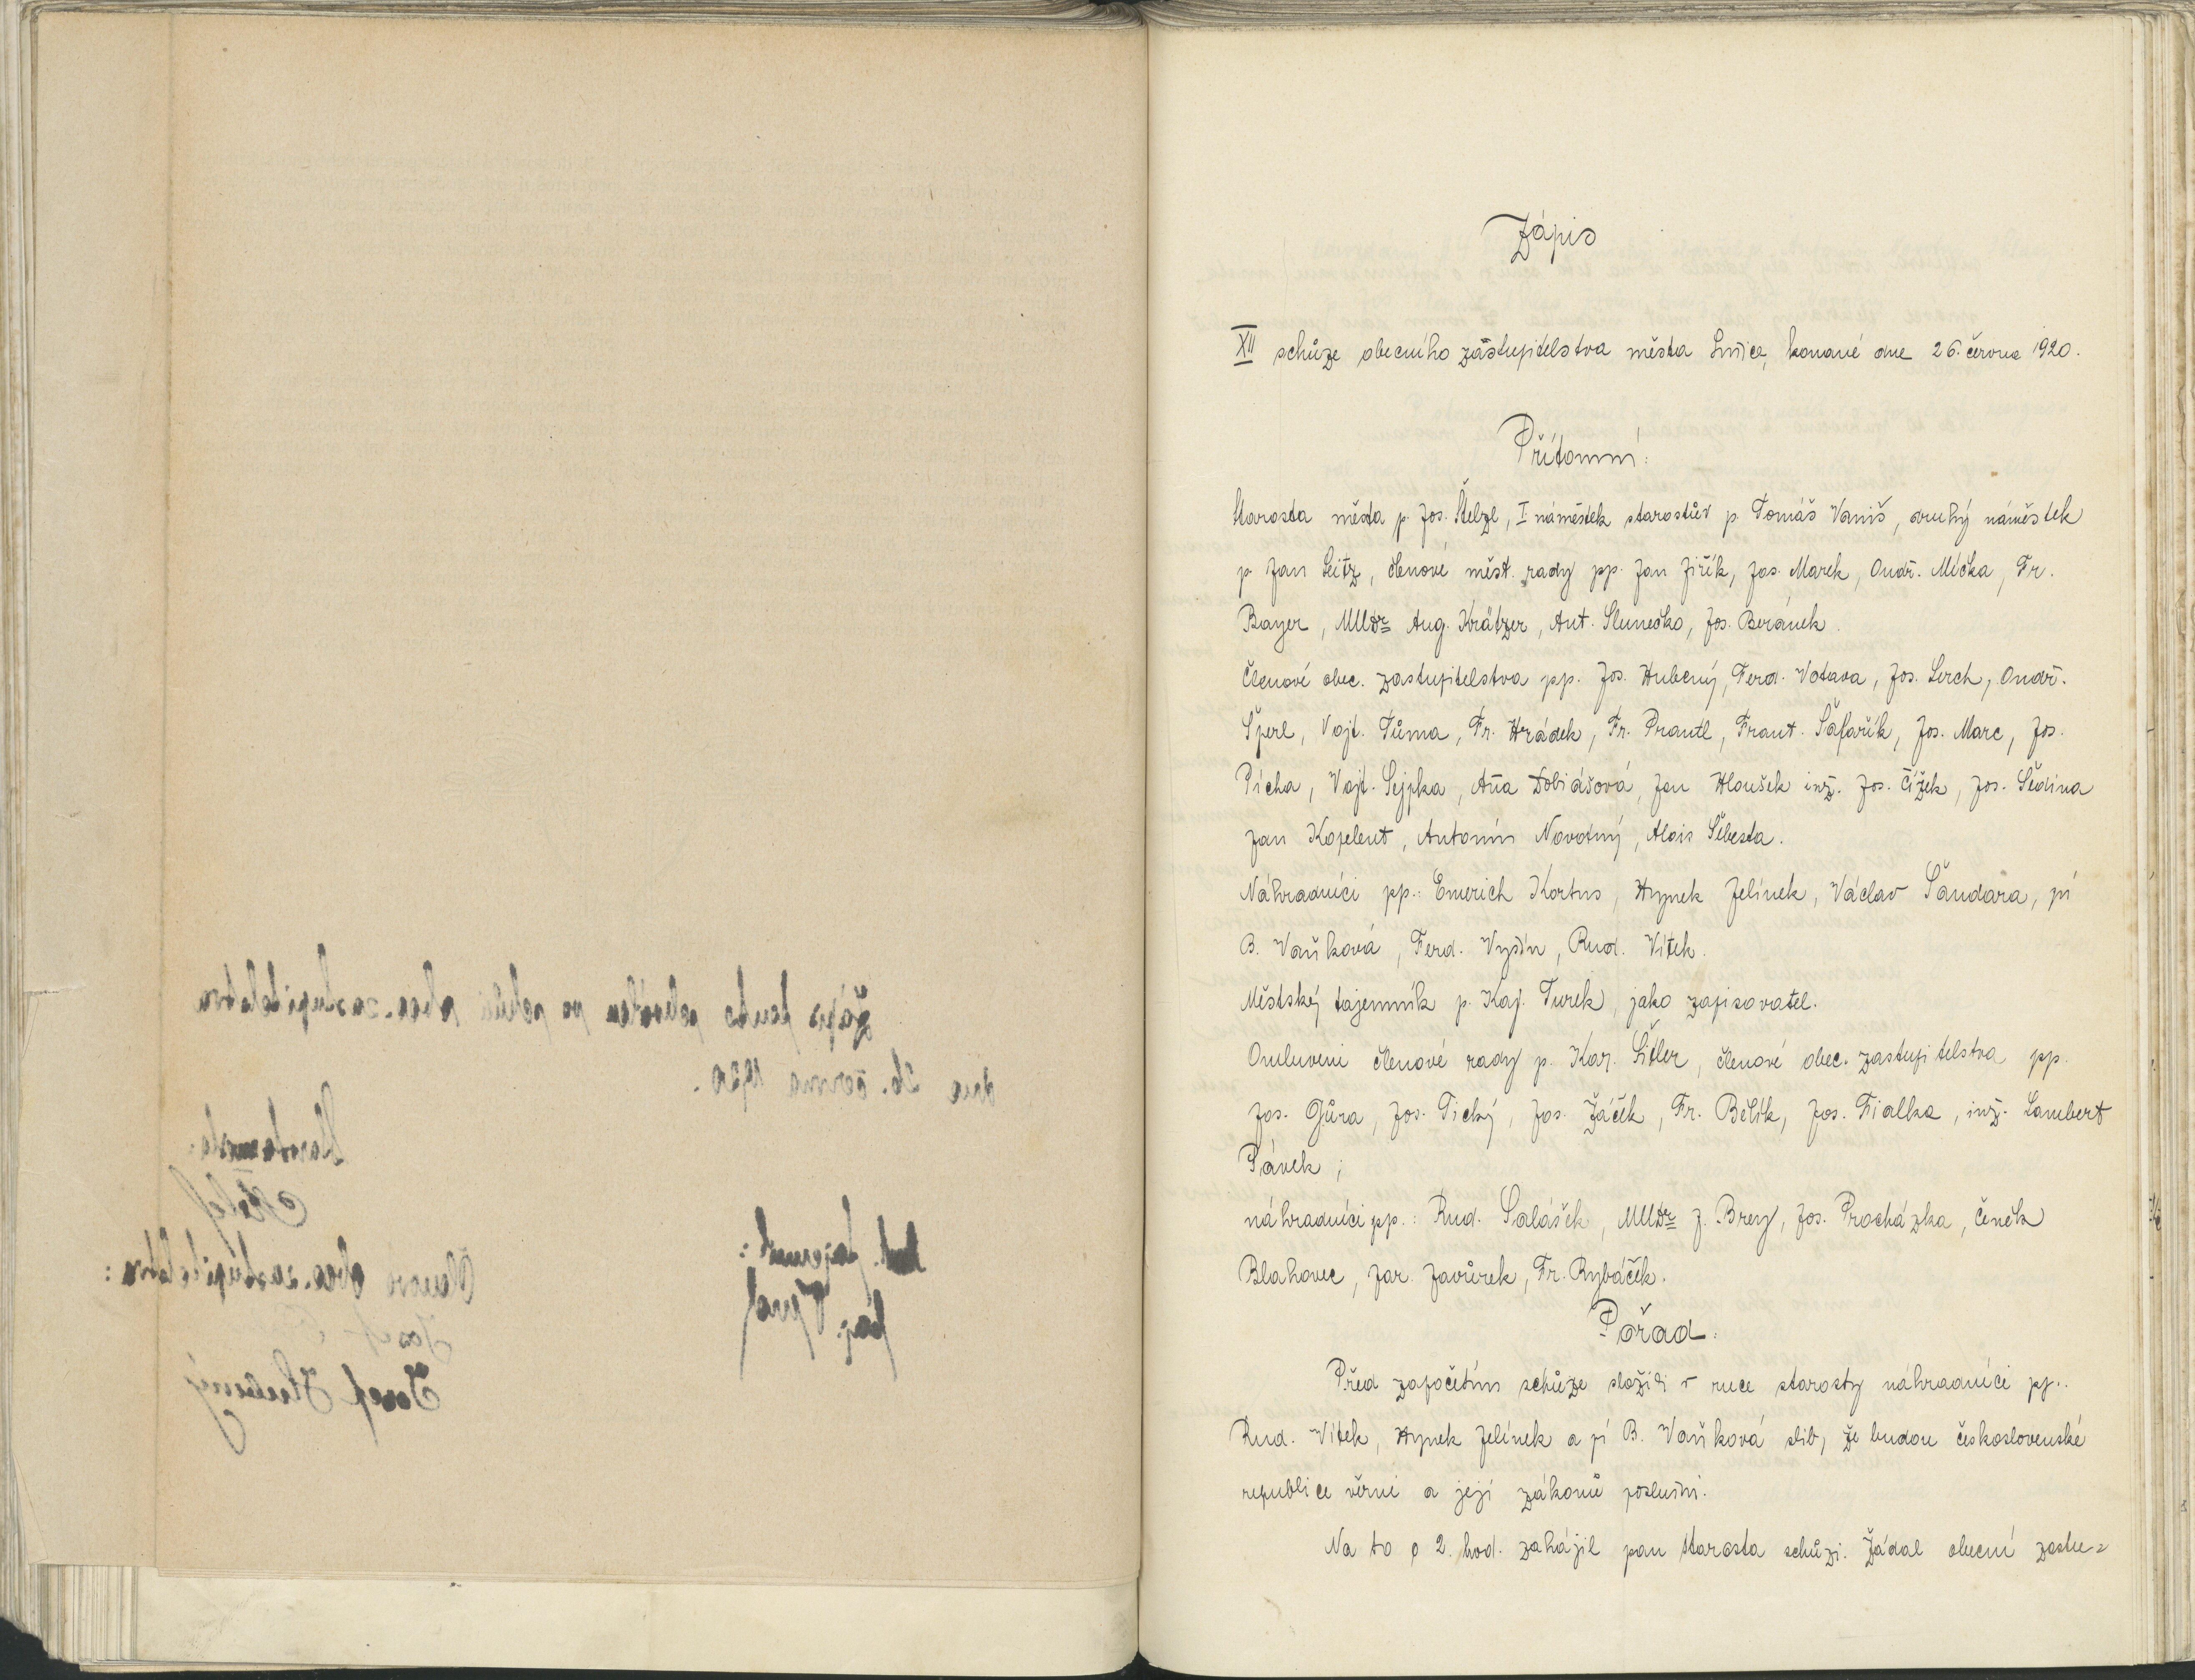 Zápis
XII schůze obecního zástupitelstva města Sušice, konané dne 26. června 1920.
Přítomní:
Starosta města p. Jos. Štelzl, I náměstek starostův p. Tomáš Vaniš, druhý náměstek
p. Jan Seitz, členové měst. rady pp. Jan Jiřík, Jos. Marek, Ondř. Míčka, Fr.
Bayer, MUDr Aug. Krätzer, Ant. Slunečko, Jos. Beránek.
Členové obec. zastupitelstva pp. Jos. Hubený, Ferd. Votava, Jos. Lerch, Ondř.
Šperl, Vojt. Tůma, Fr. Hrádek, Fr. Prantl, Frant. Šafařík, Jos. Marc, Jos.
Pícha, Vojt. Sejpka, Aña Dobiášová, Jan Hloušek inž. Jos. Čížek, Jos. Šedina
Jan Kopelent, Antonín Novotný, Alois Šebesta.
Náhradníci pp.: Emerich Kortus, Hynek Jelínek, Václav Šandara, pí
B. Vaňková, Ferd. Vyšín, Rud. Vítek.
Městský tajemník p. Kaj. Turek, jako zapisovatel.
Omluveni členové rady p. Kar. Šitler, členové obec. zastupitelstva pp.
Jos. Gůra, Jos. Tichý, Jos. Žáček, Fr. Bělík, Jos. Fialka, inž. Lambert
Pávek;
náhradníci pp.: Rud. Salášek, MUDr J. Brey, Jos. Procházka, Čeněk
Blahovec, Jar. Javůrek, Fr. Rybáček.
Pořad:
Před započetím schůze složili v ruce starosty náhradníci pp.:
Rud. Vítek, Hynek Jelínek a pí B. Vaňková slib, že budou československé
republice věrni a její zákonů poslušni.
Na to o 2. hod. zahájil pan starosta schůzi. Žádal obecní zastu=
Zápis tento schválen ve schůzi obec. zastupitelstva
dne 26. června 1920.
Starosta města:
Členové obec. zastupitelstva:
Josef
Josef Hubený
tajemník:
Kaj. Turek